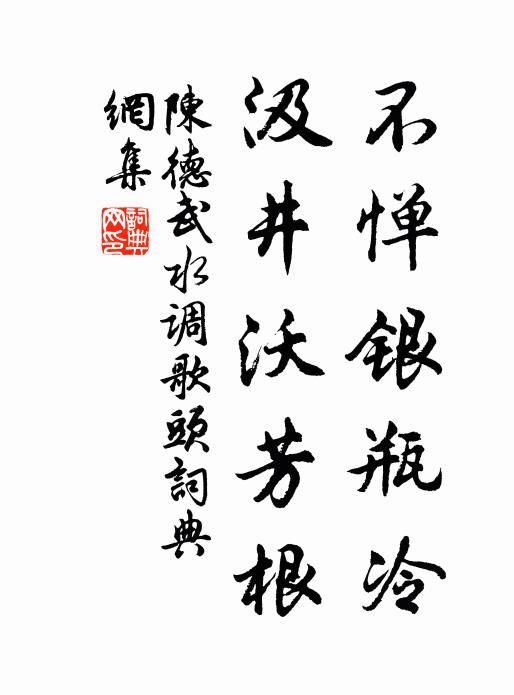 不惮银瓶冷
汲井沃芳根
陳德武水调歌頭詞典
網集
詞典
网印